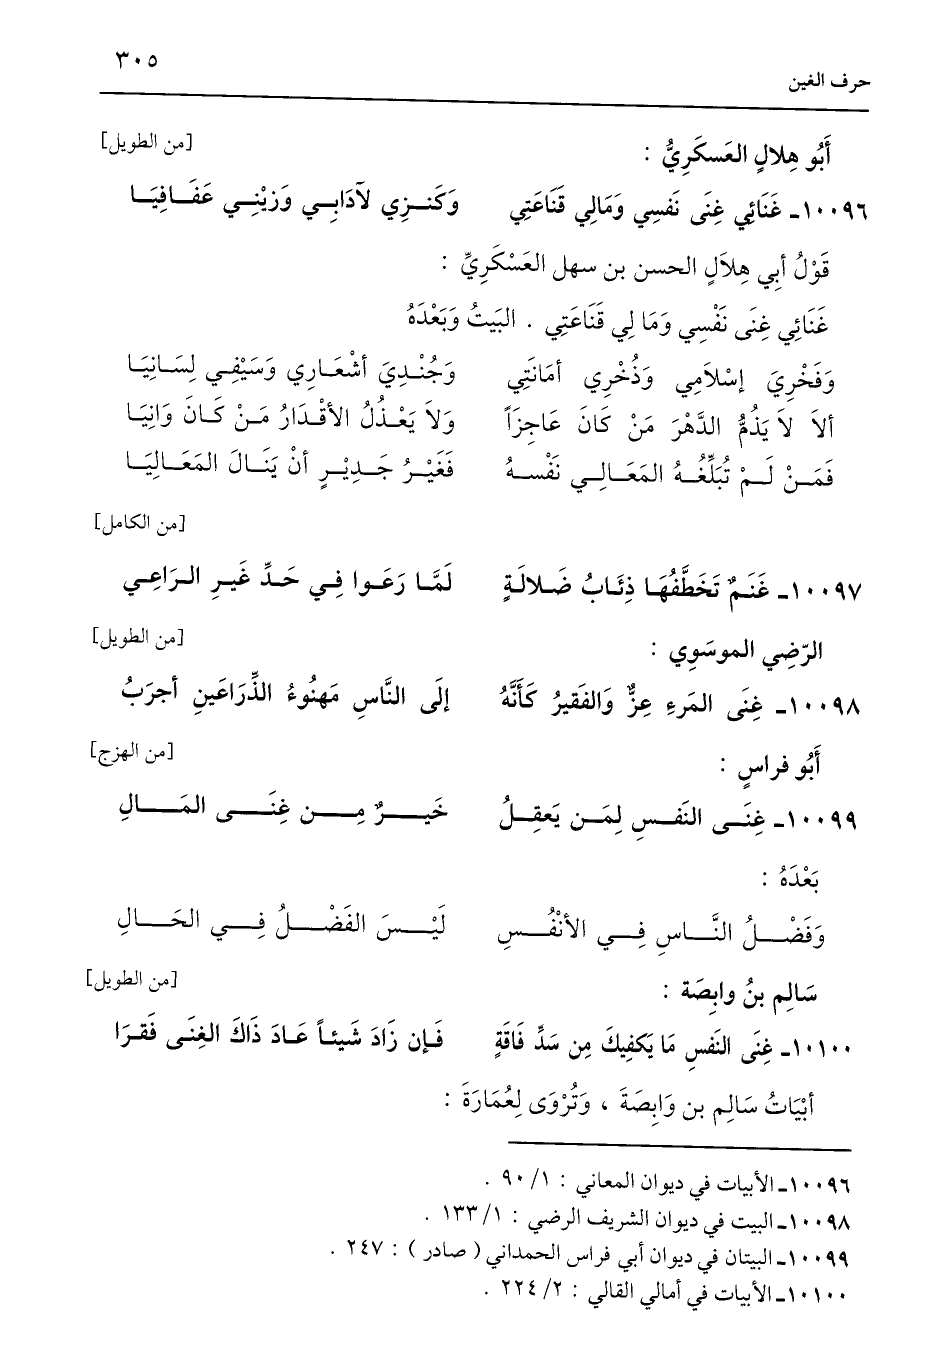 ٣٠٥
حرف الغين
أَبُو هِلالٍ العَسكَرِيُّ : [من الطويل]
١٠٠٩٦ـ غَنَائِي غِنَى نَفسِي وَمَالِي قَنَاعَتِي وَكَنـزِي لآدَابِـي وَزيْنِـي عَفَـافِيَـا
قَوْلُ أبِي هِلاَلٍ الحسن بن سهل العَسْكَرِيِّ :
غَنَائِي غِنَى نَفْسِي وَمَا لِي قَنَاعَتِي . البَيتُ وَبَعْدَهُ
وَفَخْرِيَ إسْلاَمِي وَذُخْرِي أمَانَتي وَجُنْدِيَ أشْعَـارِي وَسَيْفِـي لِسَـانِيَا
ألاَ لاَ يَذُمُّ الدَّهْرَ مَنْ كَانَ عَاجِزَاً وَلاَ يَعْـذُلُ الأقْـدَارُ مَـنْ كَـانَ وَانِيَا
فَمَـنْ لَـمْ تُبَلِّغـهُ المَعَـالِـي نَفْسـهُ فَغَيْـرُ جَـدِيْـرٍ أنْ يَنَـالَ المَعَـالِيَـا
[من الكامل]
١٠٠٩٧ـ غَنَـمٌ تَخَطَّفُهَـا ذِئَابُ ضَـلالَـةٍ لَمَّـا رَعَـوا فِـي حَـدِّ غَيـرِ الـرَاعِـي
الرّضِي الموسَوِي : [من الطويل]
١٠٠٩٨ـ غِنَى المَرءِ عِزٌّ وَالفَقيرُ كَأَنَّهُ إلَى النَّاسِ مَهنُوءُ الذِّرَاعَينِ أجرَبُ
أَبُو فراسٍ : [من الهزج]
١٠٠٩٩ـ غِنَـى النَفـسِ لِمَـن يَعقِـلُ خَيـرٌ مِـن غِنَـى المَـالِ
بَعْدَهُ :
وَفَضْـلُ النَّـاسِ فِـي الأنْفُـسِ لَيْـسَ الفَضْـلُ فِـي الحَـالِ
سَالِم بنُ وابِصَة : [من الطويل]
١٠١٠٠ـ غِنَى النَفسِ مَا يَكفِيكَ مِن سَدِّ فَاقَةٍ فَإن زَادَ شَيئـاً عَـادَ ذَاكَ الغِنَـى فَقـرَا
أبْيَاتُ سَالِم بن وَابِصَةَ ، وَتُرْوَى لِعُمَارَةَ :
١٠٠٩٦ـ الأبيات في ديوان المعاني : ١/ ٩٠ .
١٠٠٩٨ـ البيت في ديوان الشريف الرضي : ١/ ١٣٣ .
١٠٠٩٩ـ البيتان في ديوان أبي فراس الحمداني ( صادر ) : ٢٤٧ .
١٠١٠٠ـ الأبيات في أمالي القالي : ٢/ ٢٢٤ .